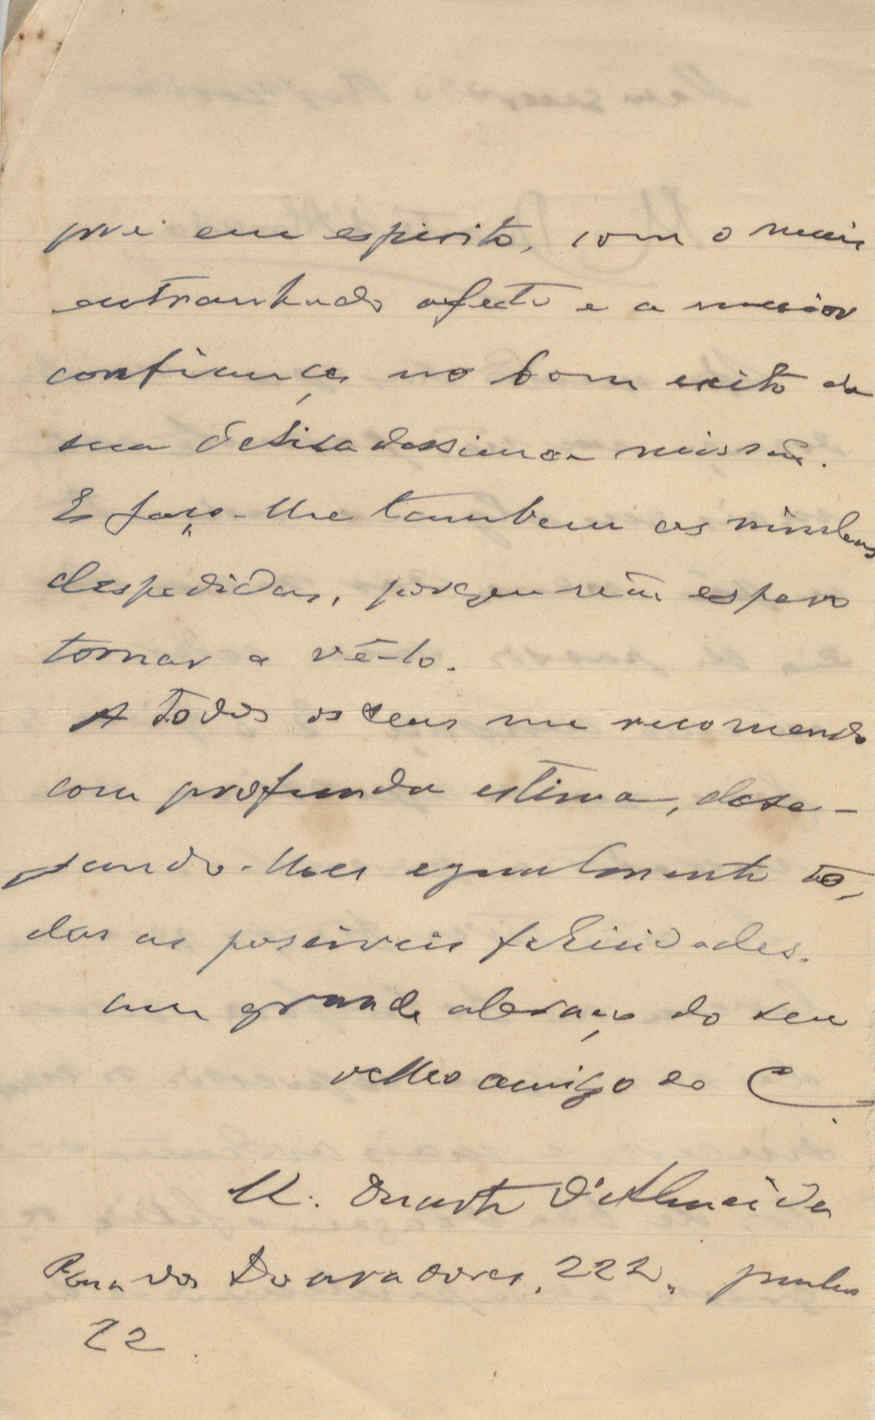 em espirito, com o mais
entranhado afecto e a maior
confiança no bom exito da
sua delicadissima missão.
E faço-lhe tambem as minhas
despedidas, porque não espero
tornar a vê-lo.
A todos os seus me recomendo
com profunda estima, dese-
jando-lhes egualmente to-
das as possiveis felicidades.
Um grande abraço do seu
velho amigo do C
M. Duarte d'Almeida
Rua dos Douradores, 222, junho
22